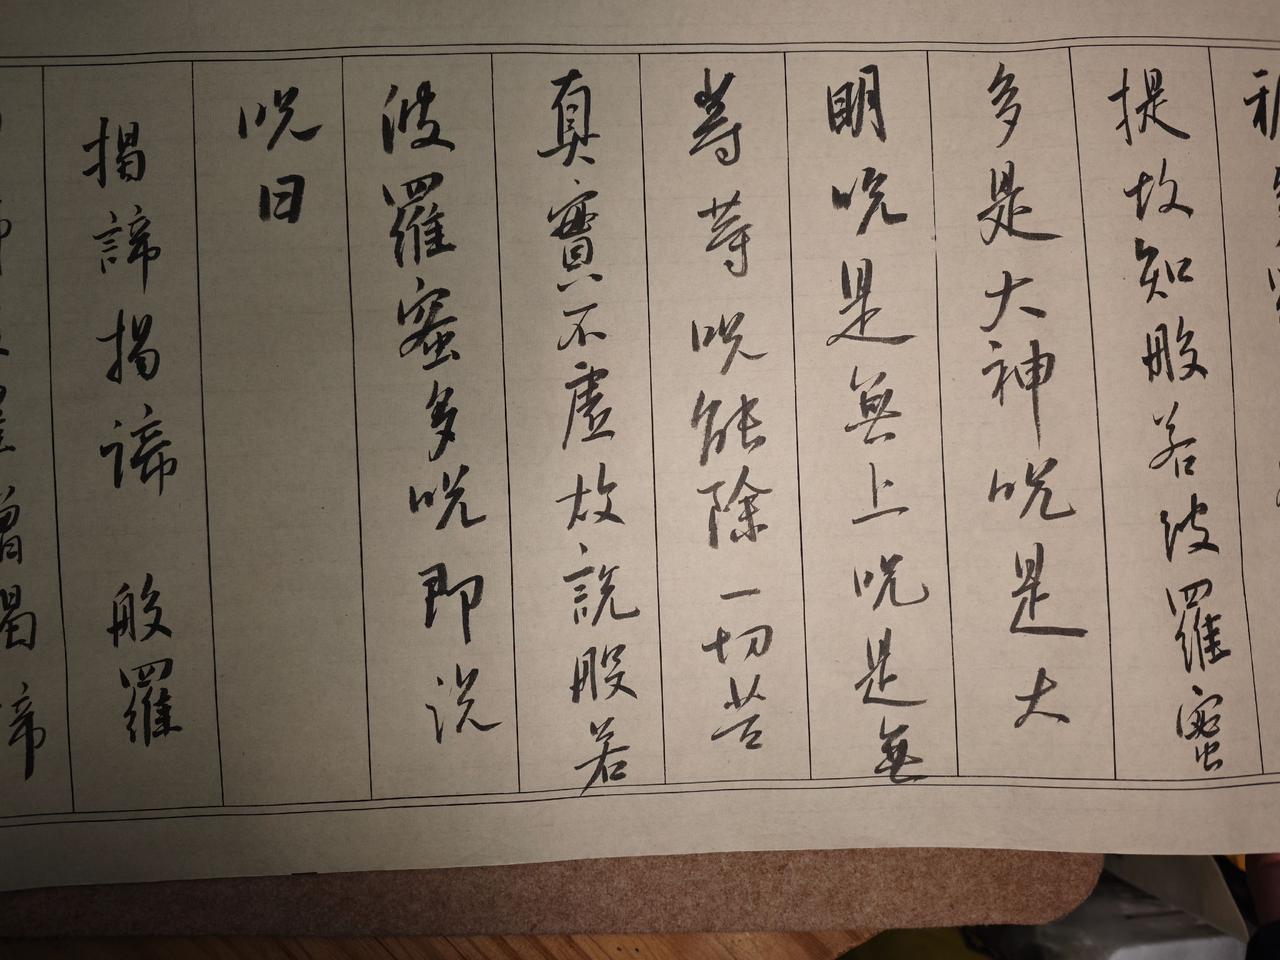 提故知般若波羅蜜
多是大神呪是大
明呪是無上呪是無
等等呪能除一切苦
真實不虛故說般若
波羅蜜多呪即说
呪曰
揭諦揭諦 般羅